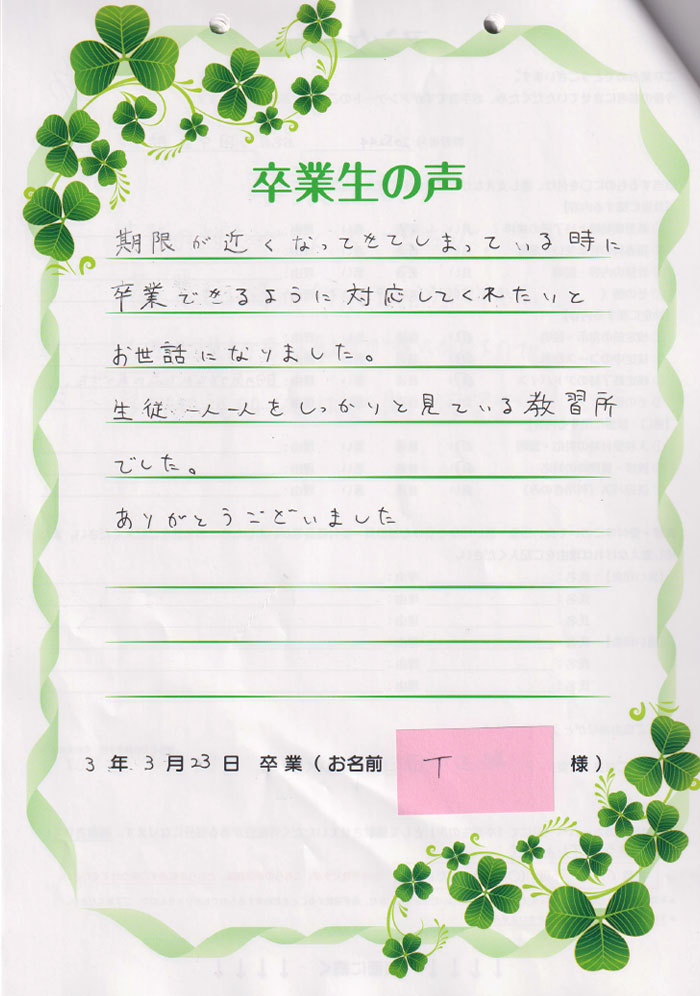 卒業生の声
期限が近くなってきてしまっている時に
卒業できるように対応してくれたいと
お世話になりました。
生徒一人一人をしっかりと見ている教習所
でした。
ありがとうございました
3年3月23日 卒業（お名前 T 様）